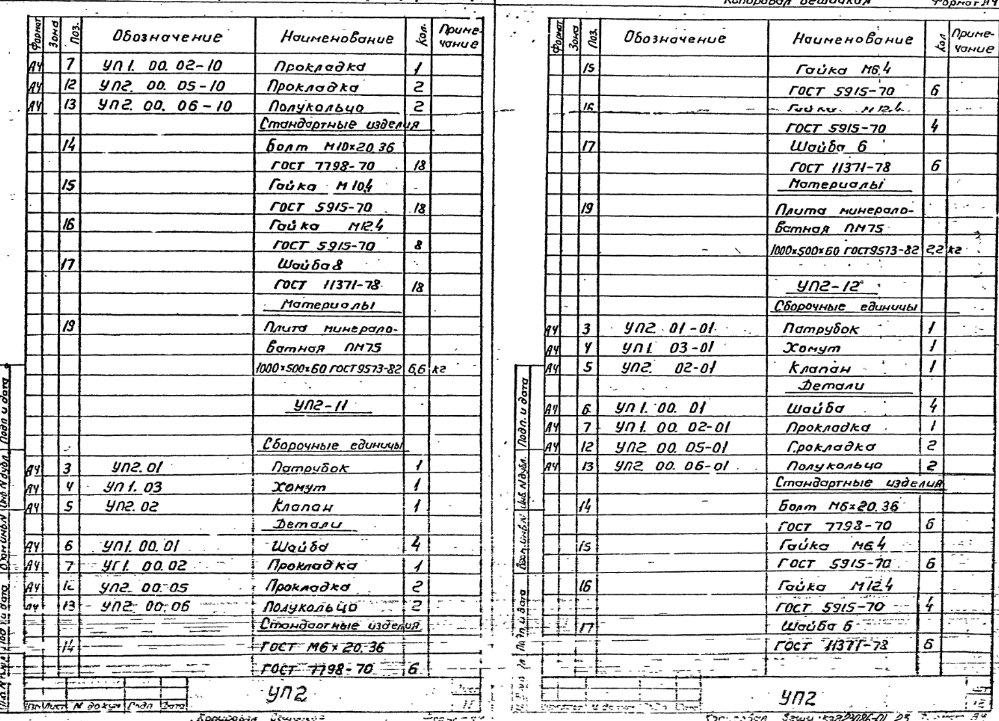 Копировал Формат А4
Формат Зона Поз. Обозначение Наименование Кол. Примечание
А4 7 УП1. 00. 02-10 Прокладка 1
А4 12 УП2. 00. 05-10 Прокладка 2
А4 13 УП2. 00. 06-10 Полукольцо 2
Стандартные изделия
14 Болт М10×20.36
ГОСТ 7798-70 18
15 Гайка М10.4
ГОСТ 5915-70 18
16 Гайка М12.4
ГОСТ 5915-70 8
17 Шайба 8
ГОСТ 11371-78 18
Материалы
19 Плита минерало-
ватная ПМ75
1000×500×60 ГОСТ9573-82 6,6 кг
УП2-11
Сборочные единицы
А4 3 УП2.01 Патрубок 1
А4 4 УП1.03 Хомут 1
А4 5 УП2.02 Клапан 1
Детали
А4 6 УП1.00.01 Шайба 4
А4 7 УП1.00.02 Прокладка 1
А4 12 УП2 00.05 Прокладка 2
А4 13 УП2 00.06 Полукольцо 2
Стандартные изделия
14 ГОСТ М6×20.36
ГОСТ 7798-70 6
УП2
11
Формат Зона Поз. Обозначение Наименование Кол Примечание
15 Гайка М6.4
ГОСТ 5915-70 6
16 Гайка М12.4
ГОСТ 5915-70 4
17 Шайба 6
ГОСТ 11371-78 6
Материалы
19 Плита минерало-
ватная ПМ75
1000×500×60 ГОСТ9573-82 2,2 кг
УП2-12
Сборочные единицы
А4 3 УП2 01-01 Патрубок 1
А4 4 УП1. 03-01 Хомут 1
А4 5 УП2. 02-01 Клапан 1
Детали
А4 6 УП1. 00. 01 Шайба 4
А4 7 УП1. 00. 02-01 Прокладка 1
А4 12 УП2 00. 05-01 Прокладка 2
А4 13 УП2 00. 06-01 Полукольцо 2
Стандартные изделия
14 Болт М6×20.36
ГОСТ 7798-70 6
15 Гайка М6.4
ГОСТ 5915-70 6
16 Гайка М12.4
ГОСТ 5915-70 4
17 Шайба 6
ГОСТ 11371-78 6
УП2
12